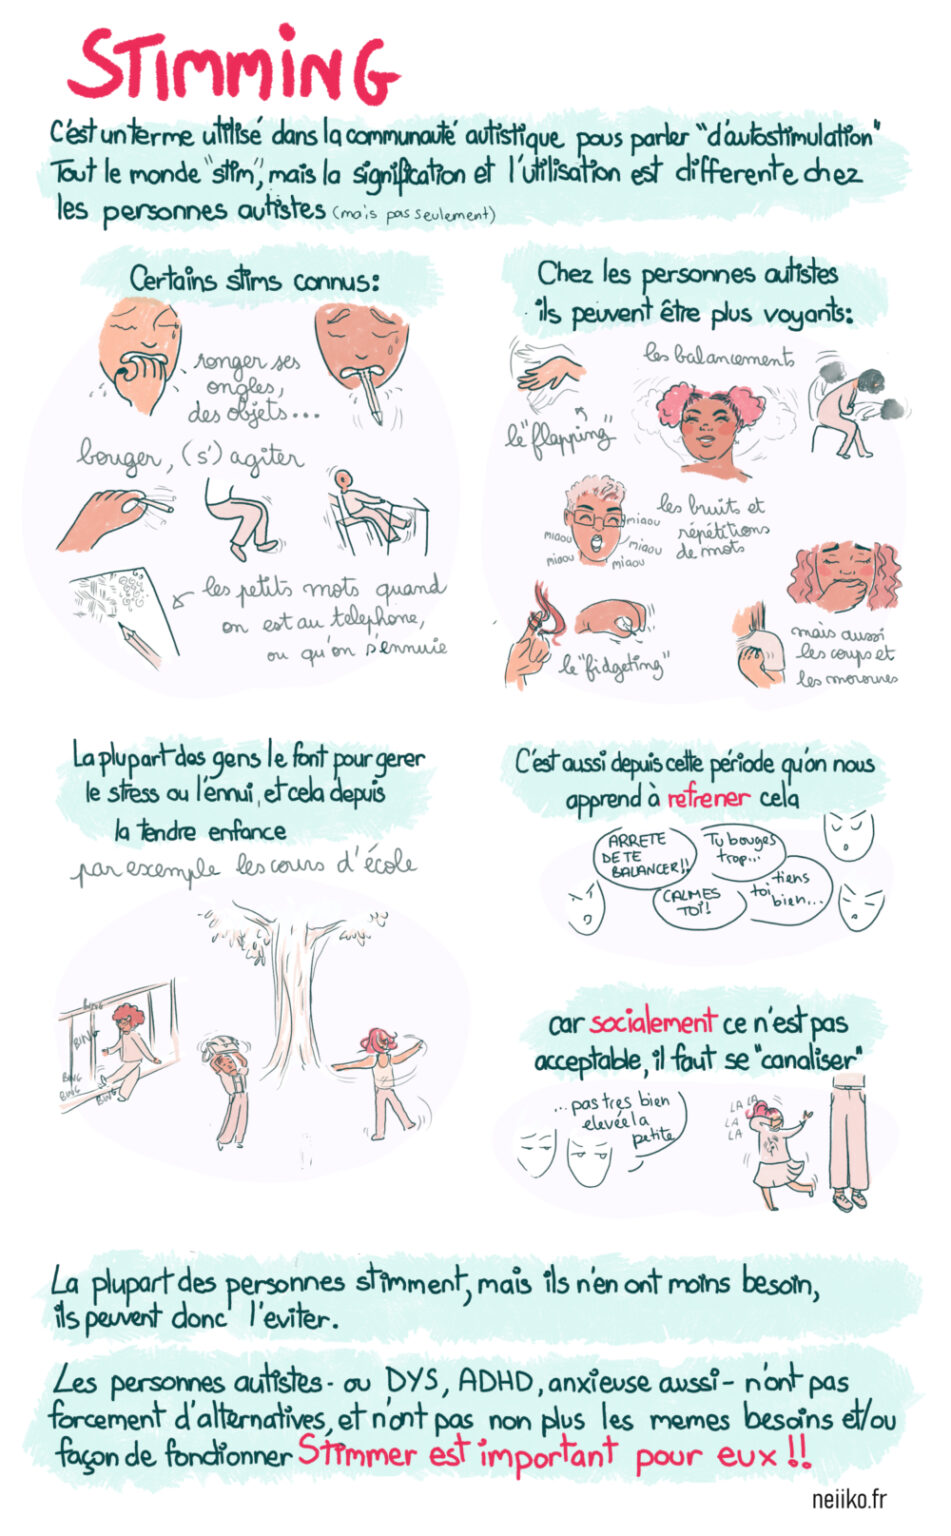 STIMMING
C'est un terme utilisé dans la communauté autistique pous parler "d'autostimulation"
Tout le monde "stim", mais la signification et l'utilisation est differente chez
les personnes autistes (mais pas seulement)
Certains stims connus:
ronger ses
ongles,
des objets...
bouger, (s') agiter
les petits mots quand
on est au telephone,
ou qu'on s'ennuie
Chez les personnes autistes
ils peuvent être plus voyants:
les balancements
le "flapping"
les bruits et
répétitions
de mots
miaou
miaou
miaou
miaou
miaou
le "fidgeting"
mais aussi
les coups et
les morsures
La plupart des gens le font pour gerer
le stress ou l'ennui, et cela depuis
la tendre enfance
par exemple les cours d'école
BING
BING
BING
BING
BING
BING
C'est aussi depuis cette période qu'on nous
apprend à refrener cela
ARRETE
DE TE
BALANCER!!
Tu bouges
trop...
CALMES
TOI!
tiens
toi bien...
car socialement ce n'est pas
acceptable, il faut se "canaliser"
...pas tres bien
elevée la
petite
LA LA
LA
LA
La plupart des personnes stimment, mais ils n'en ont moins besoin,
ils peuvent donc l'eviter.
Les personnes autistes - ou DYS, ADHD, anxieuse aussi - n'ont pas
forcement d'alternatives, et n'ont pas non plus les memes besoins et/ou
façon de fonctionner Stimmer est important pour eux !!
neiiko.fr